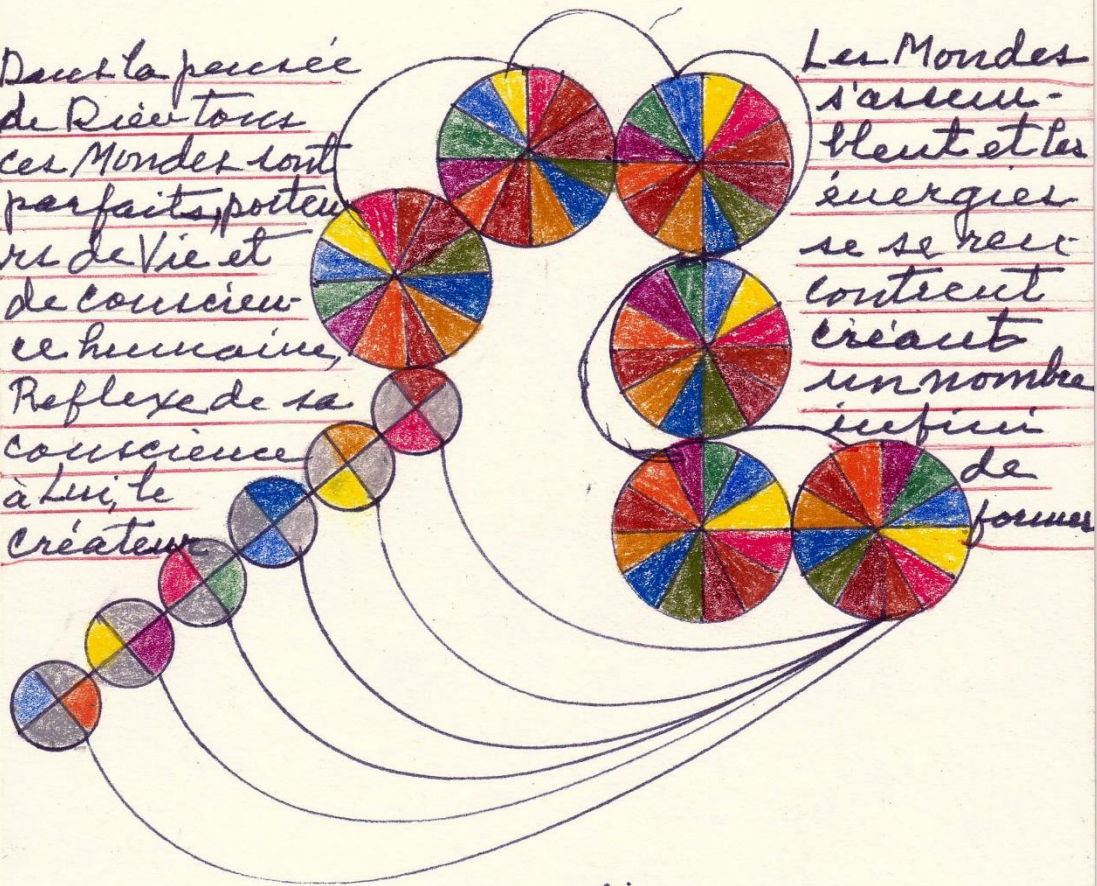 Dans la pensée
de Dieu tous
ces Mondes sont
parfaits, porteu
rs de Vie et
de conscien-
ce humaine,
Reflexe de sa
conscience
à Lui, le
créateur
Les Mondes
s'assem-
blent et les
énergies
se se ren-
contrent
créant
un nombre
infini
de
formes